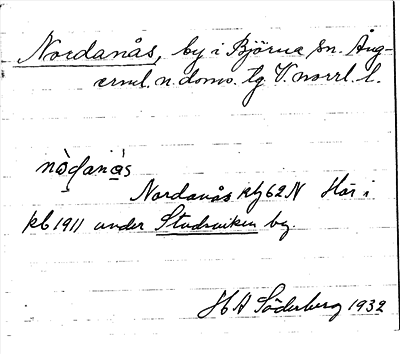 Nordanås, by i Björna sn. Ång-
erml. n. doms. tg V. norrl. l.
nò̩danás
Nordanås ktj 62 N Här i
kb 1911 under Studsviken by.
H A Söderberg 1932